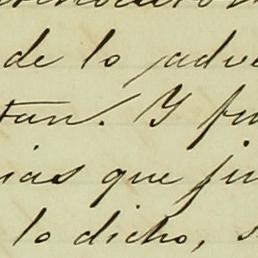 de lo adve
tan. Y fu
ias que ju
lo dicho, s